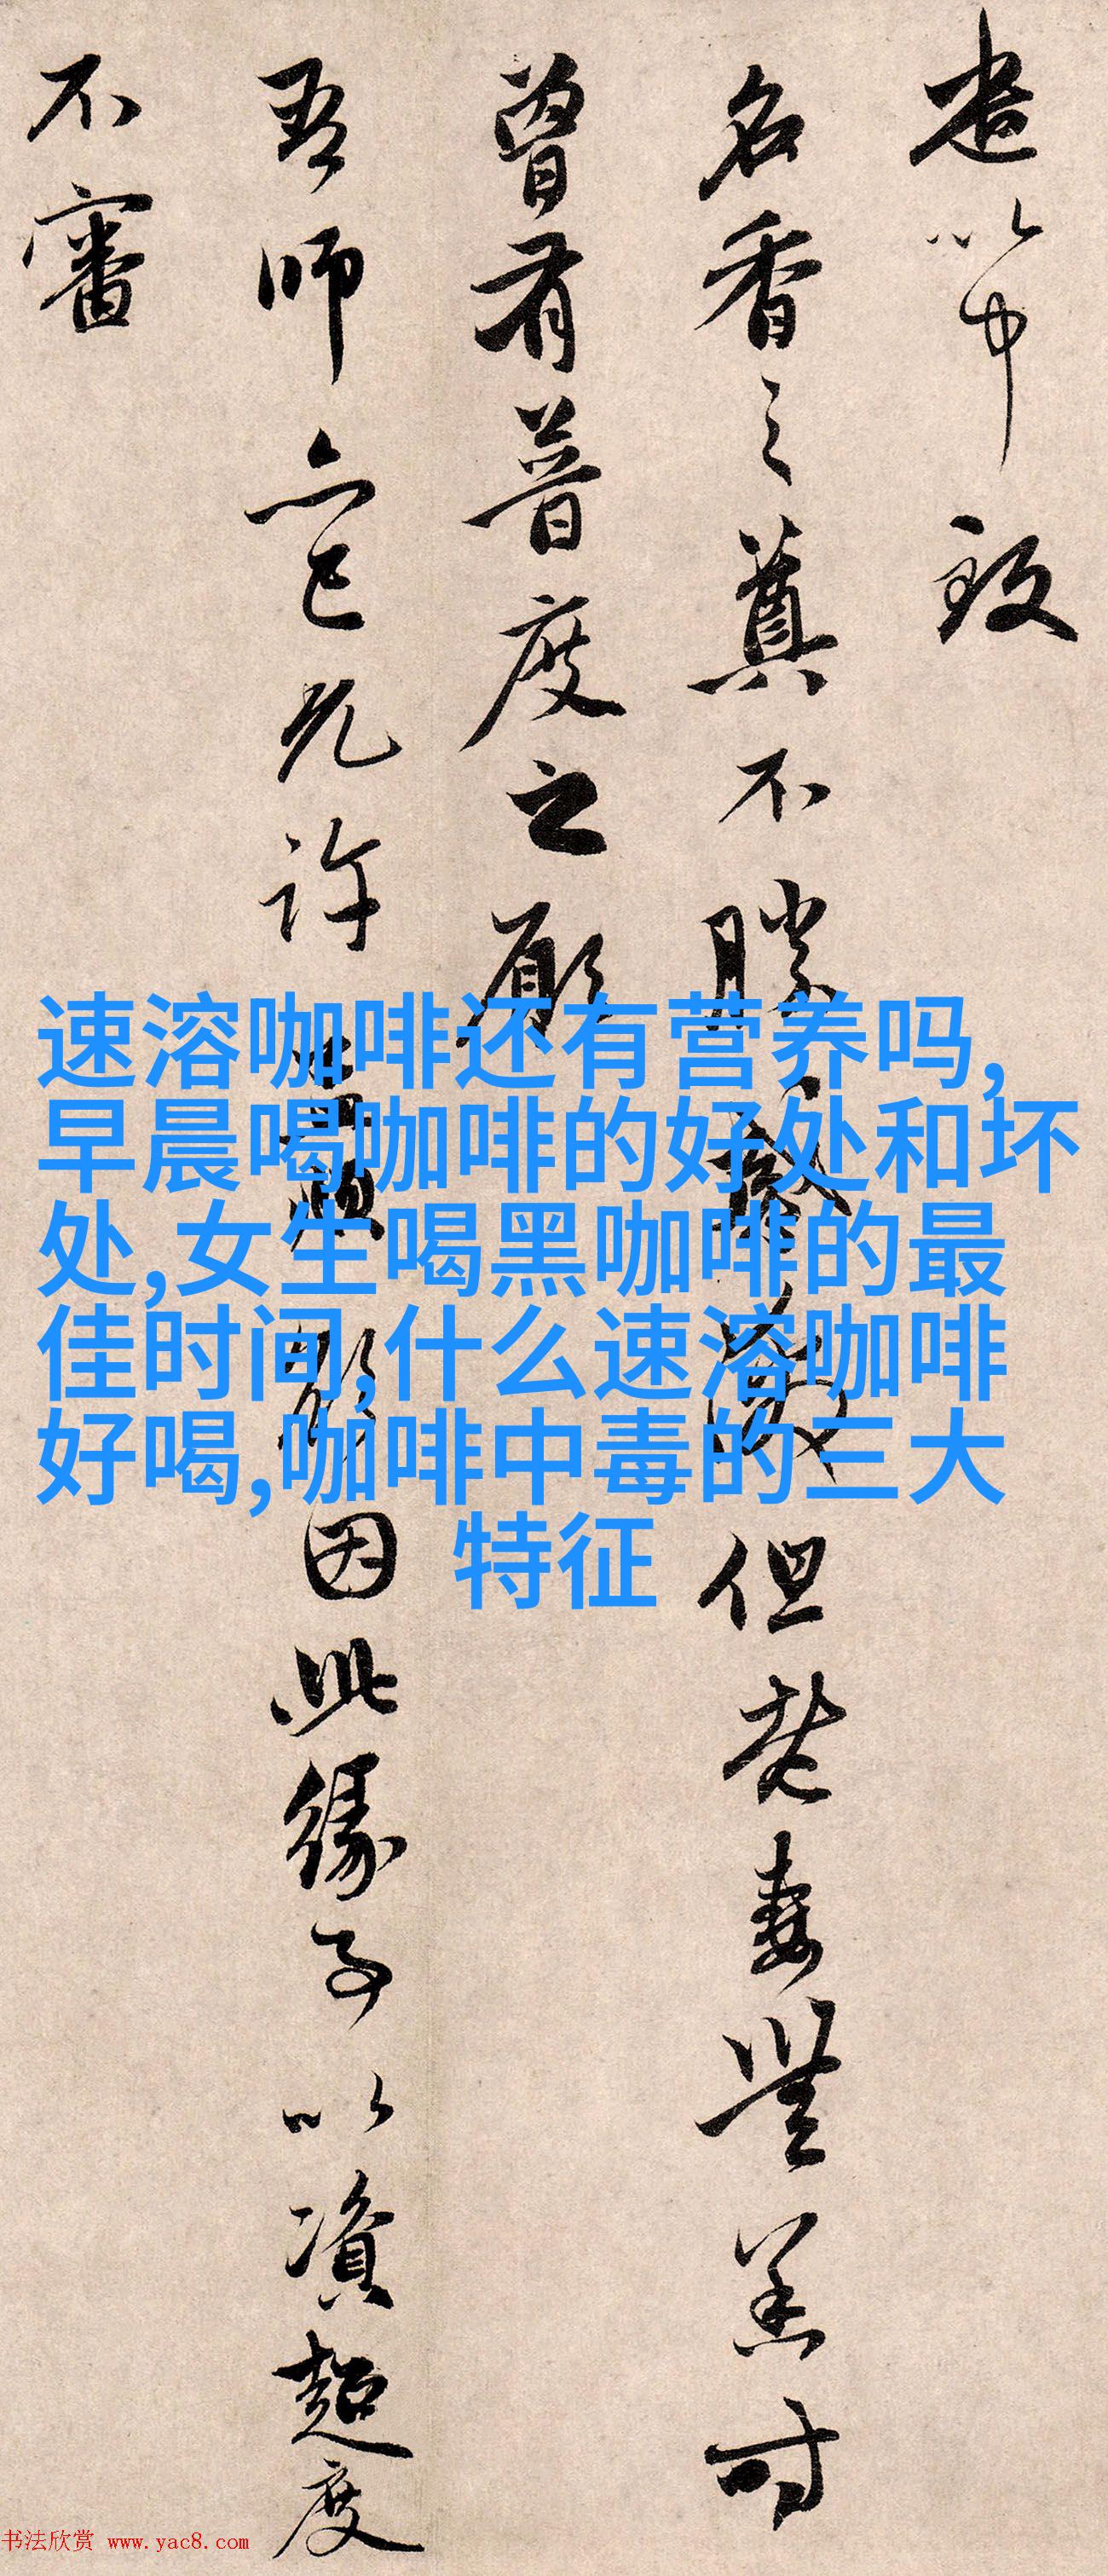 遣以中致
名香之奠不勝
但焚妻世羔时
曾有普度之願
吾师亡已允许
因此缘子以資超度
不審
速溶咖啡还有营养吗,
早晨喝咖啡的好处和坏
处,女生喝黑咖啡的最
佳时间,什么速溶咖啡
好喝,咖啡中毒的三大
特征
书法欣赏 www.yac8.com